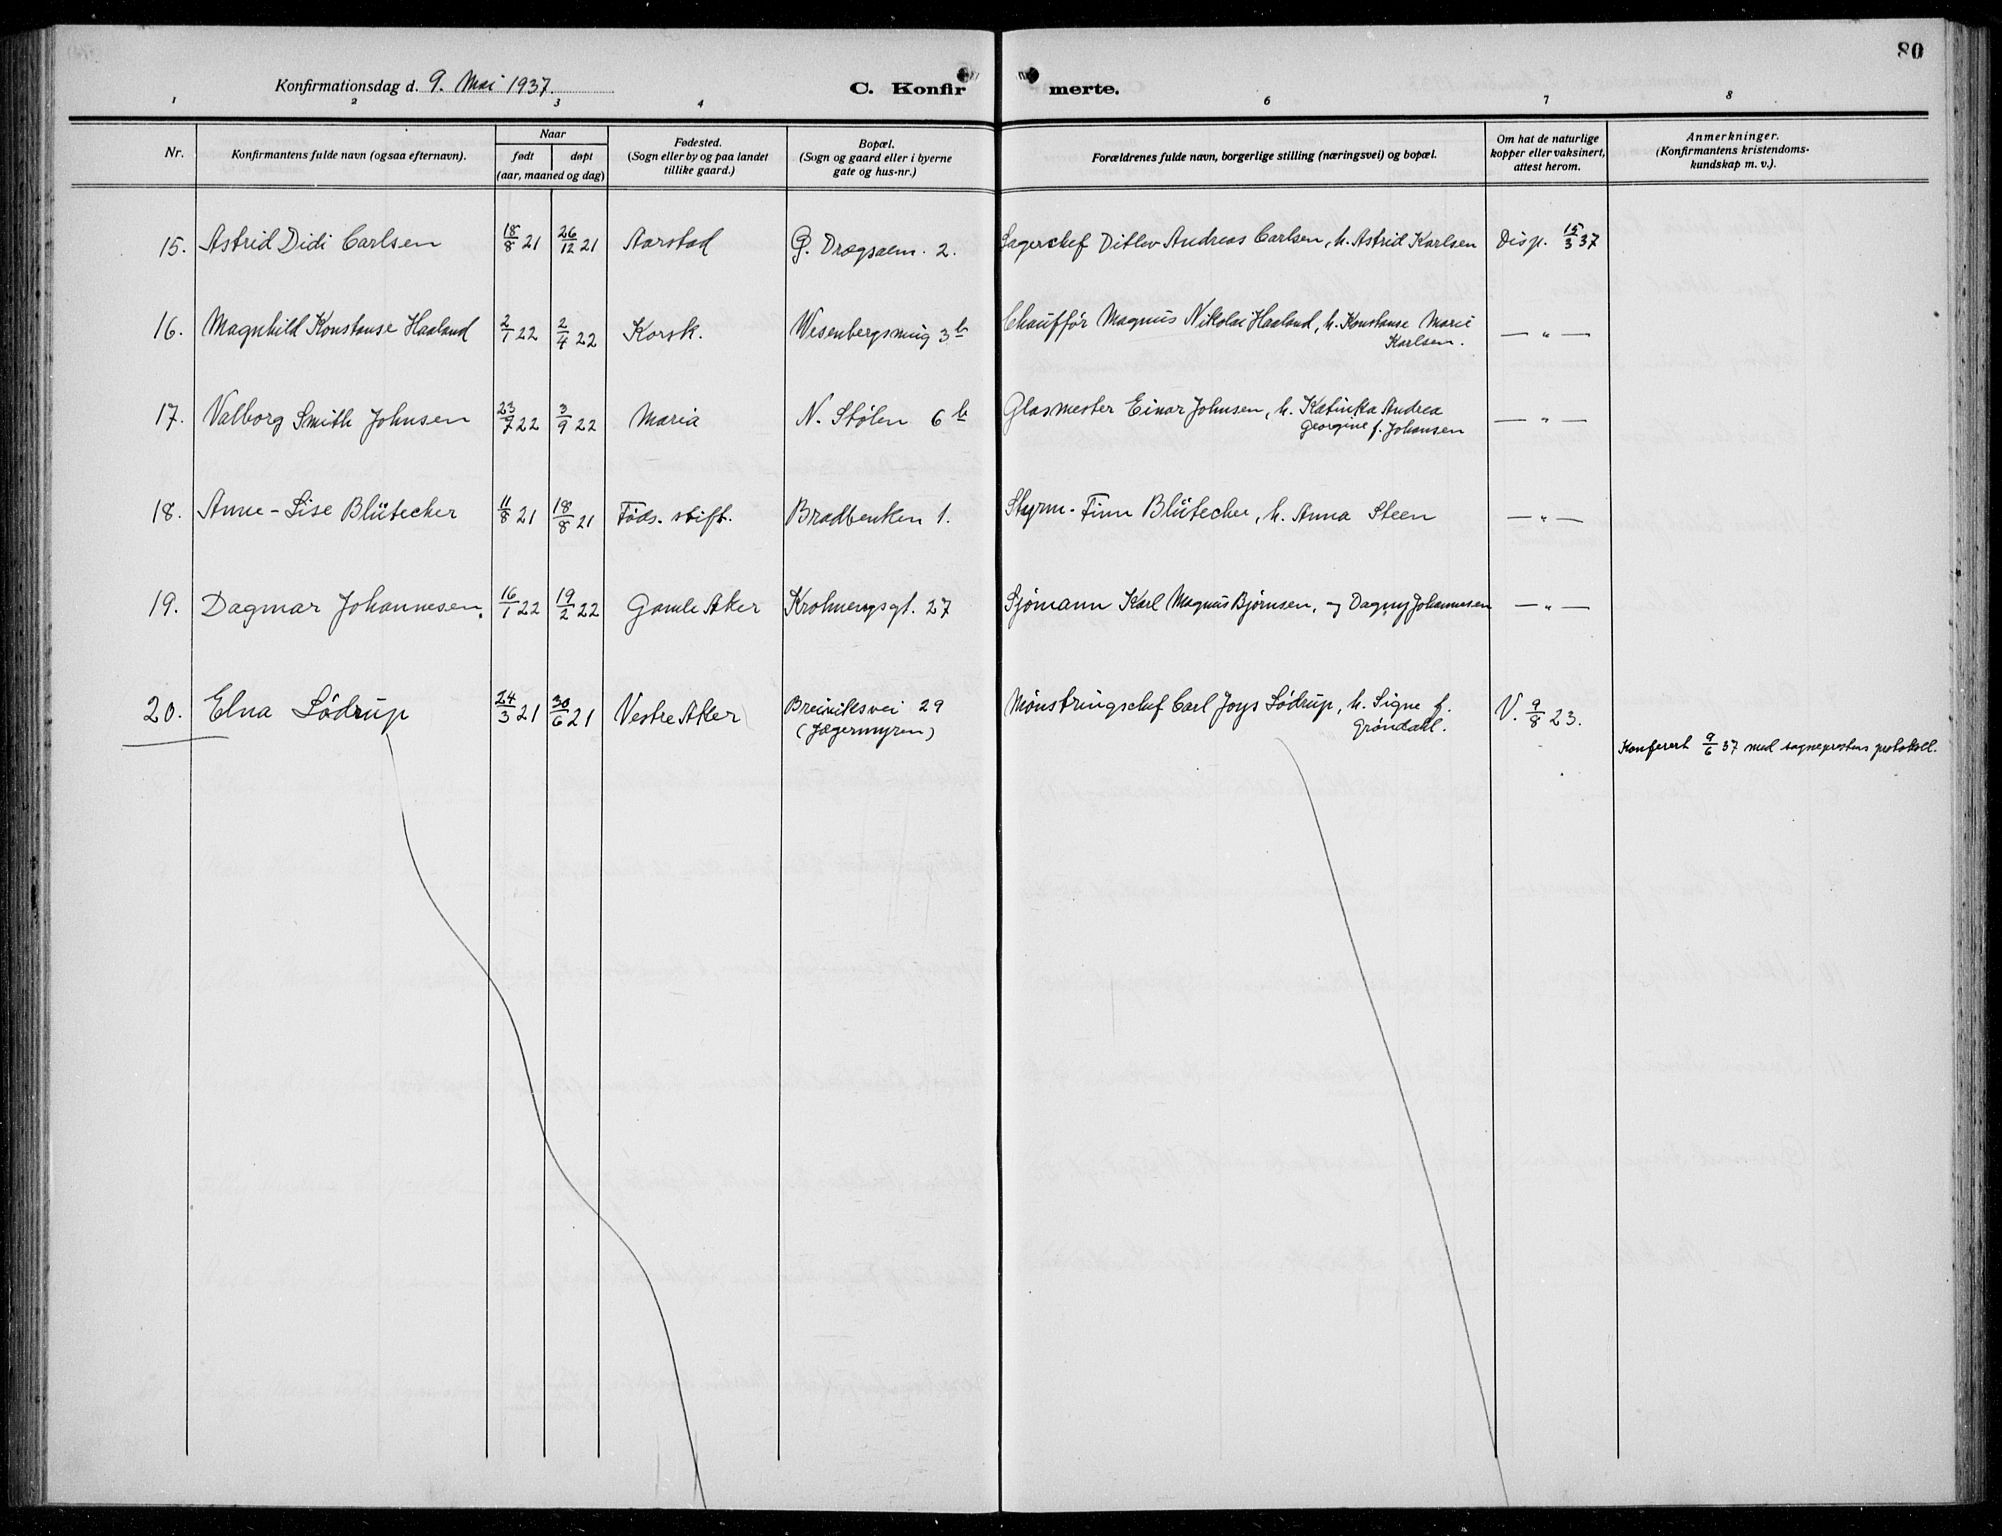 80
Konfirmationsdag d. 9. Mai 1937.
C. Konfirmerte.
1 2 3 4 6 7 8
Nr.
Konfirmantens fulde navn (ogsaa efternavn).
Naar
født døpt
(aar, maaned og dag)
Fødested.
(Sogn eller by og paa landet
tillike gaard.)
Bopæl.
(Sogn og gaard eller i byerne
gate og hus-nr.)
Forældrenes fulde navn, borgerlige stilling (næringsvei) og bopæl.
Om hat de naturlige
kopper eller vaksinert,
attest herom.
Anmerkninger.
(Konfirmantens kristendoms-
kundskap m. v.).
15. Astrid Didi Carlsen 18/8 21 26/12 21 Aarstad Dragsalm. 2. Lagerchef Ditlev Andreas Carlsen, h. Astrid Karlsen Disp. 15/3 37
16. Magnhild Konstanse Haaland 2/1 22 2/4 22 Korsk. Wesenbergsmug 3b Chauffør Magnus Nikolai Haaland, h. Konstanse Marie — " —
Karlsen.
17. Valborg Smith Johnsen 23/7 22 3/9 22 Maria N. Stølen 6b Glasmester Einar Johnsen, h. Katinka Andrea — " —
Georgine f. Johansen
18. Anne-Lise Blütecher 11/8 21 18/8 21 Føds. stift. Bradbenken 1. Styrm. Finn Blütecher, h. Anna Steen — " —
19. Dagmar Johannesen. 16/1 22 19/2 22 Gamle Aker Krohnengsgt. 27 Sjømann Karl Magnus Bjørnsen, og Dagny Johannesen — " —
20. Elna Lødrup 24/3 21 30/6 21 Vestre Aker Breiviksvei 29 Mønstringschef Carl Joys Lødrup, h. Signe f. V. 9/8 23.
(Jægermyren) Grøndahl.
Konferert 9/6 37 med sogneprestens protokoll.